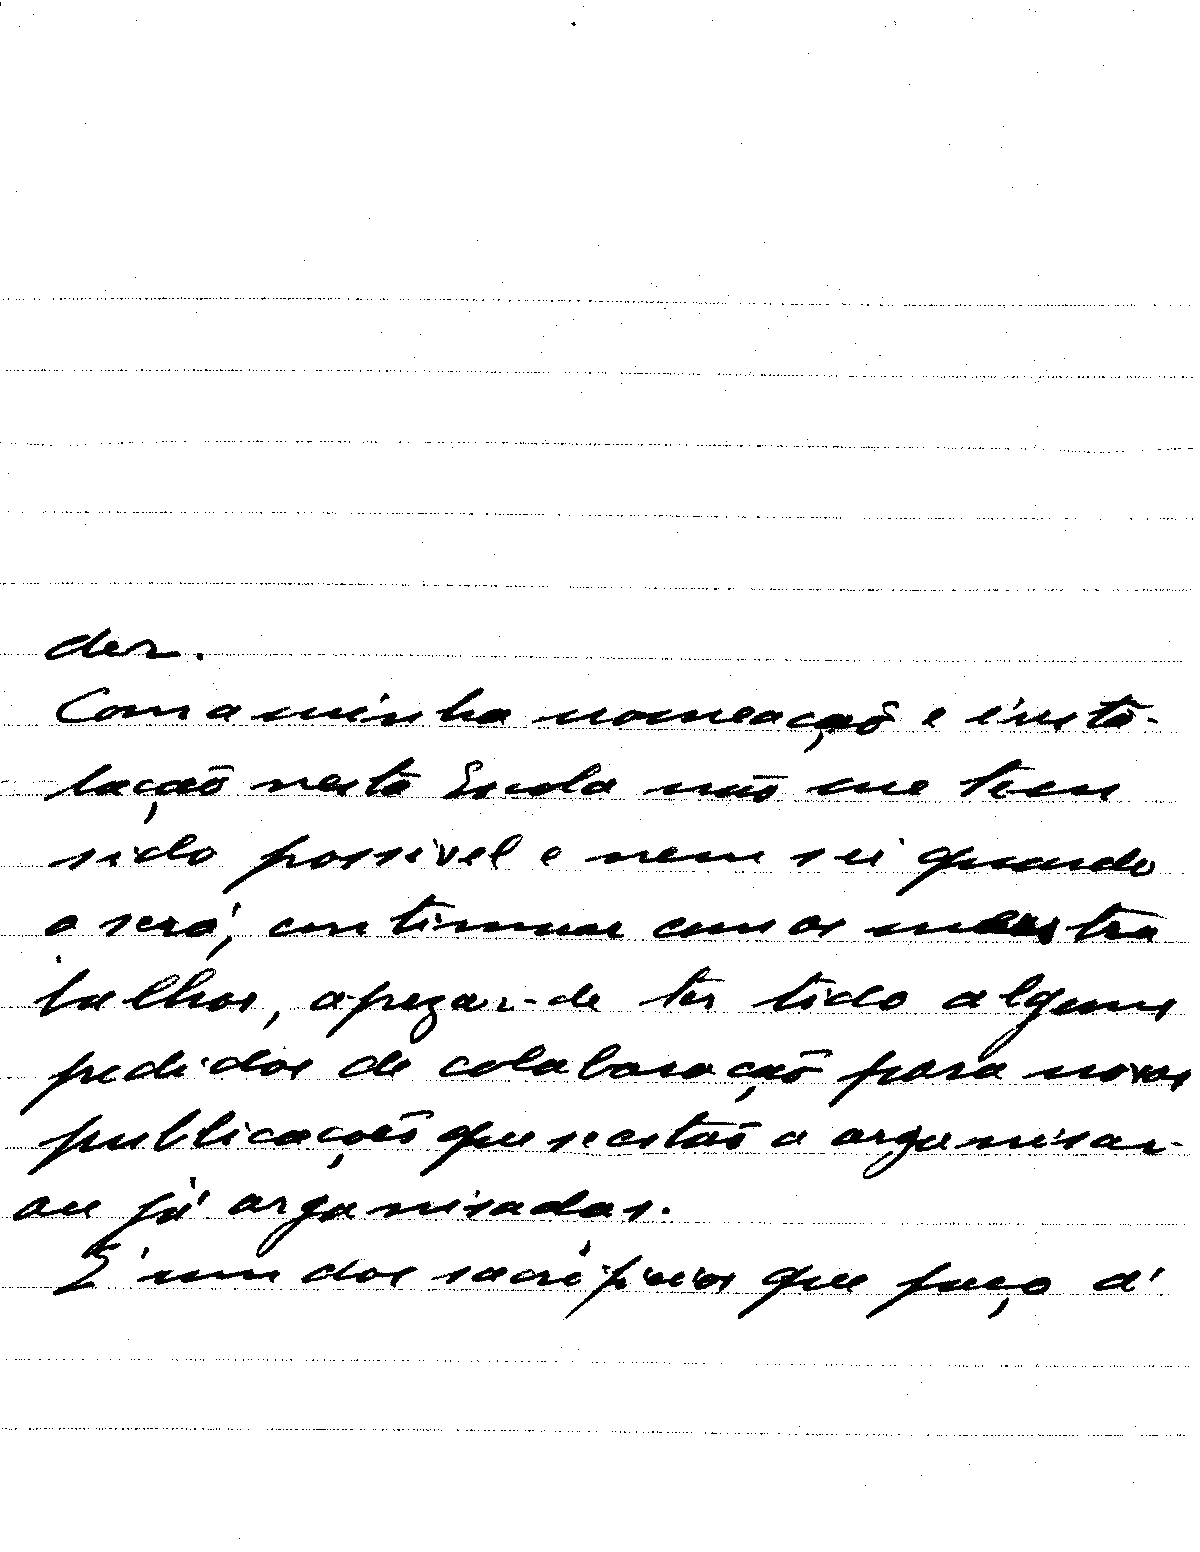 der.
Com a minha nomeação e insta-
lação nesta Escola não me tem
sido possivel e nem sei quando
o será, continuar com os meus tra
balhos, apezar-de ter tido alguns
pedidos de colaboração para novas
publicações que se estão a organisar
ou já organisadas.
E' um dos sacrificios que faço á